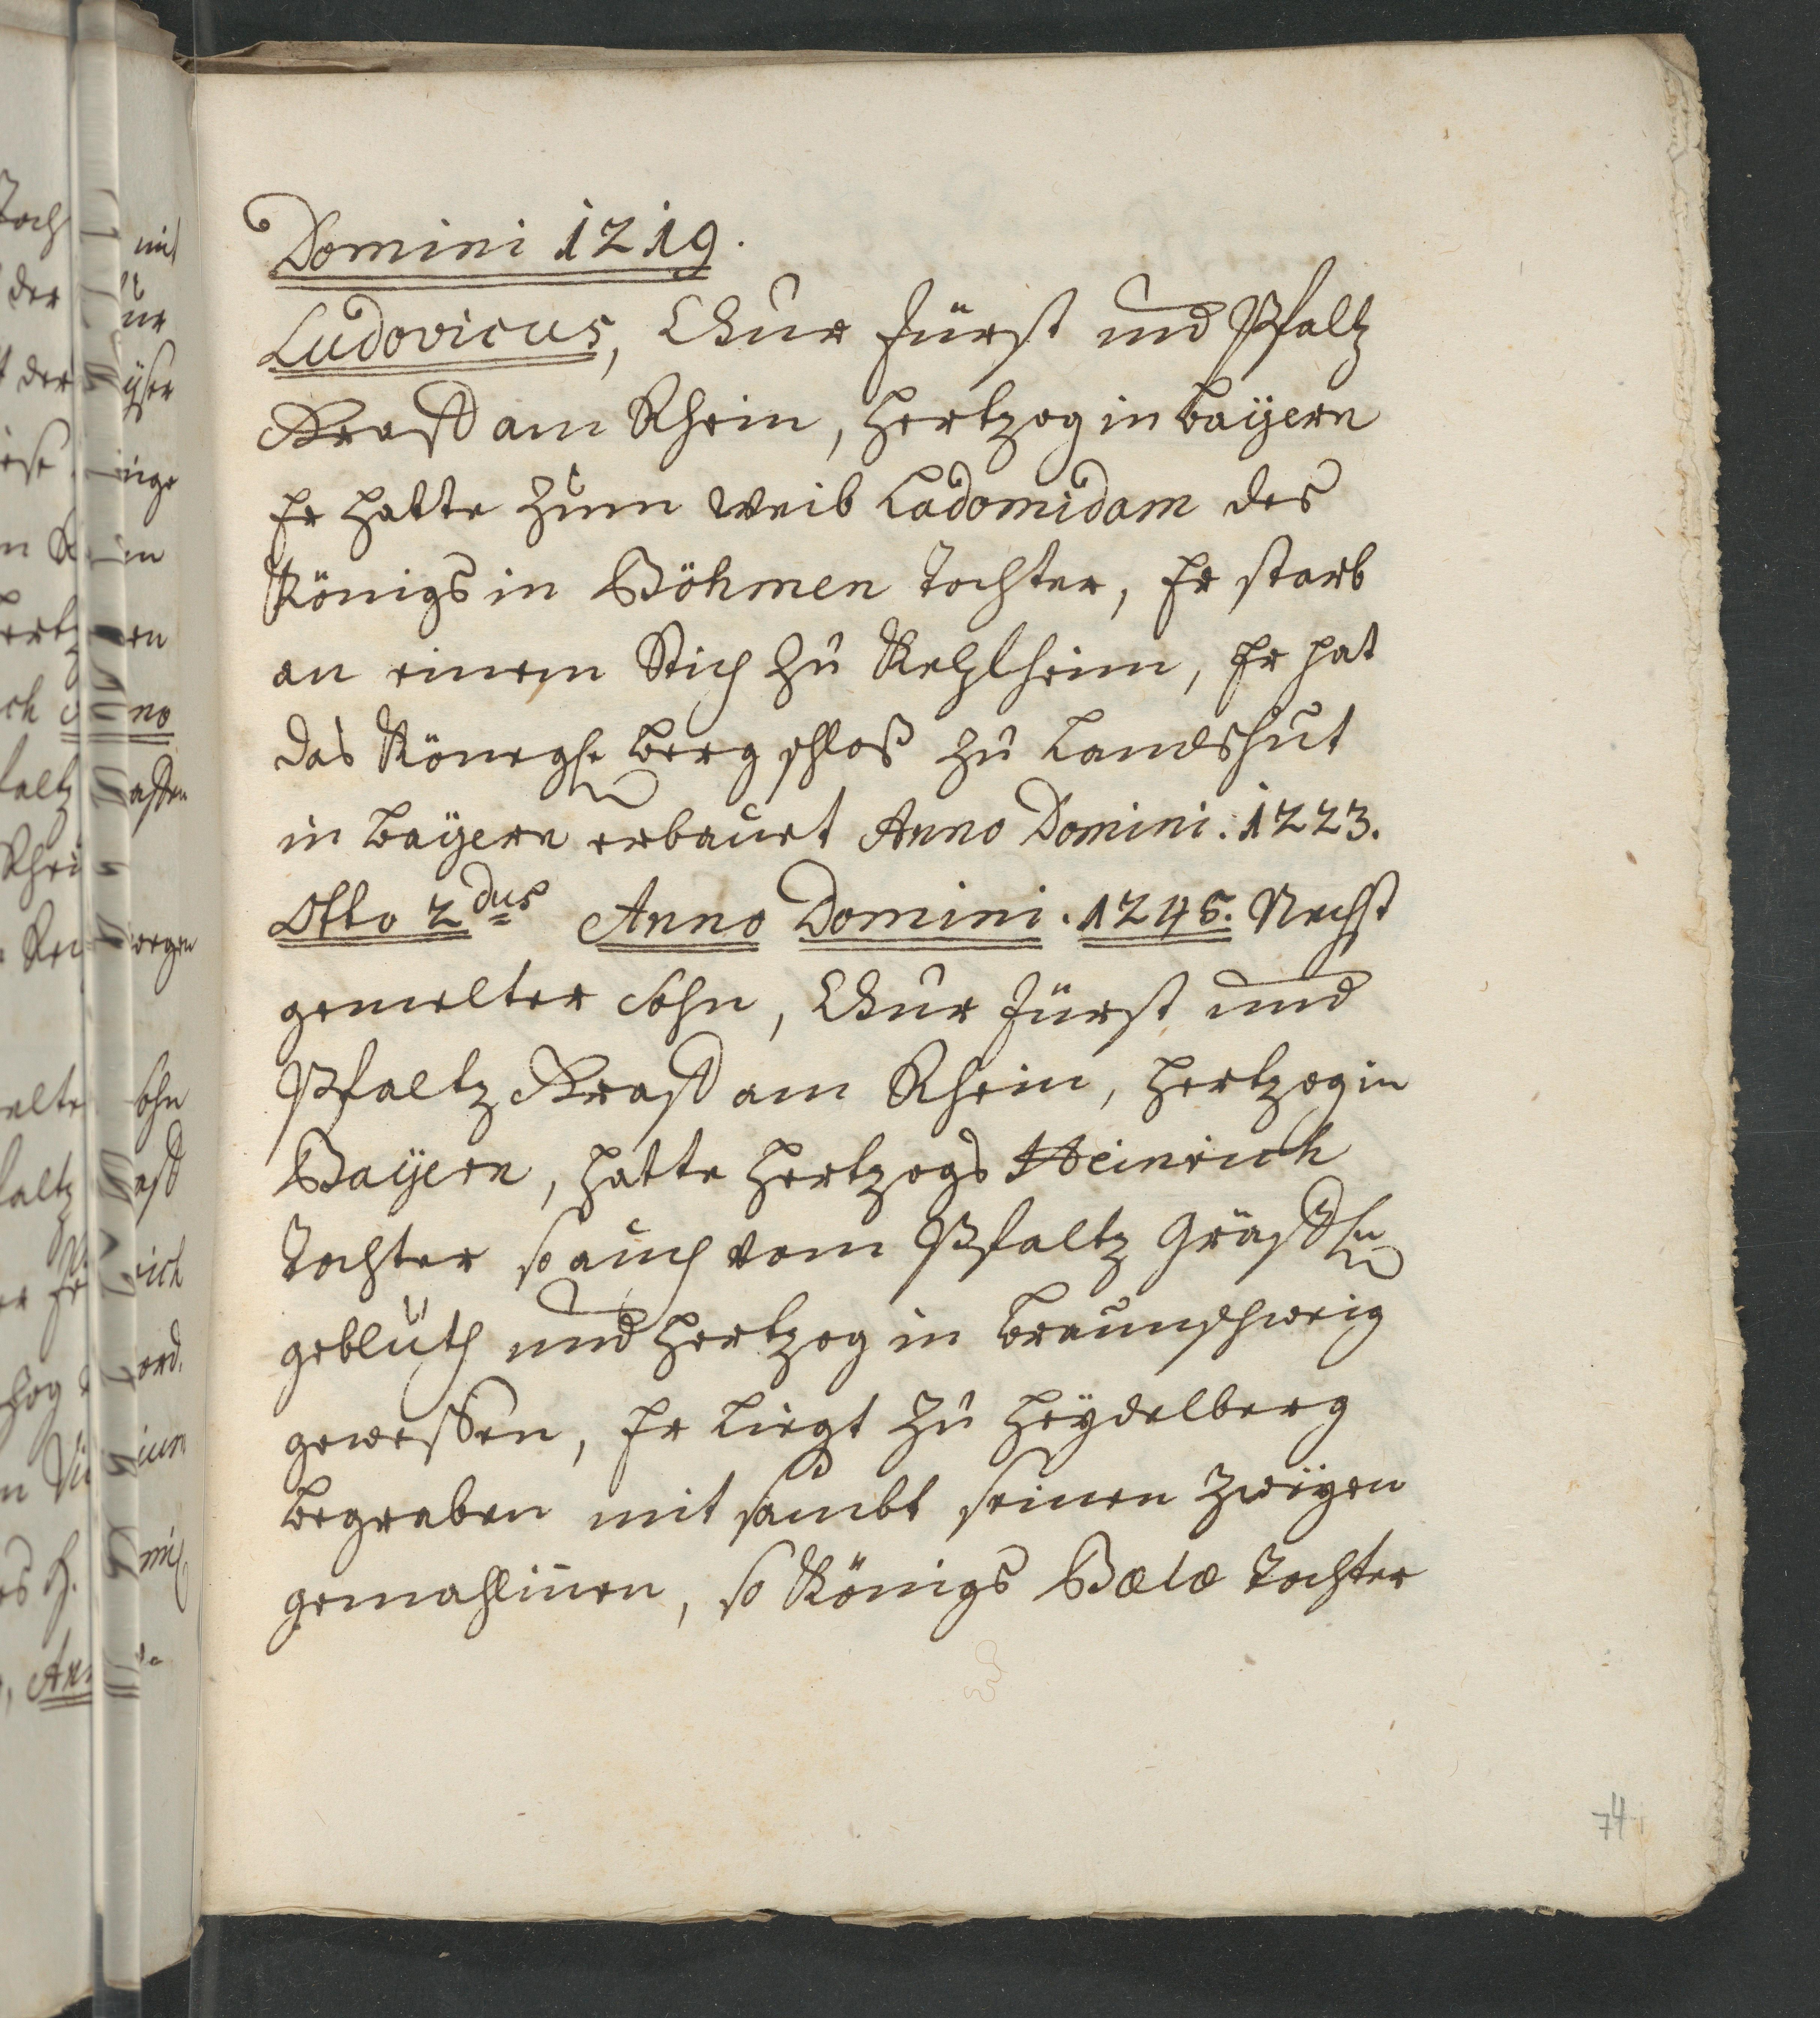 Domini 1219.
Ludovicus, Chur fürst und Pfaltz
Graff am Rhein, Hertzog in Bayern
Er hatte zum Weib Ladomidam des
Königs in Böhmen Tochter, Er starb
an einem Stich zu Kehlheim, Er hat
das berg schloß zu Landshut
in Bayern erbauet Anno Domini. 1223.
Otto 2dus Anno Domini. 1245. Nechst
gemelter Sohn, Chur fürst und
Pfaltz Graff am Rhein, Hertzog in
Bayern, hatte Hertzogs Heinrich
Tochter so auch vom Pfaltz
geblüth und Hertzog in Braunschweig
gewessen, Er liegt zu Heydelberg
begraben mit sambt seinen zweyen
gemahlinen, so Königs Bælæ Tochter
74